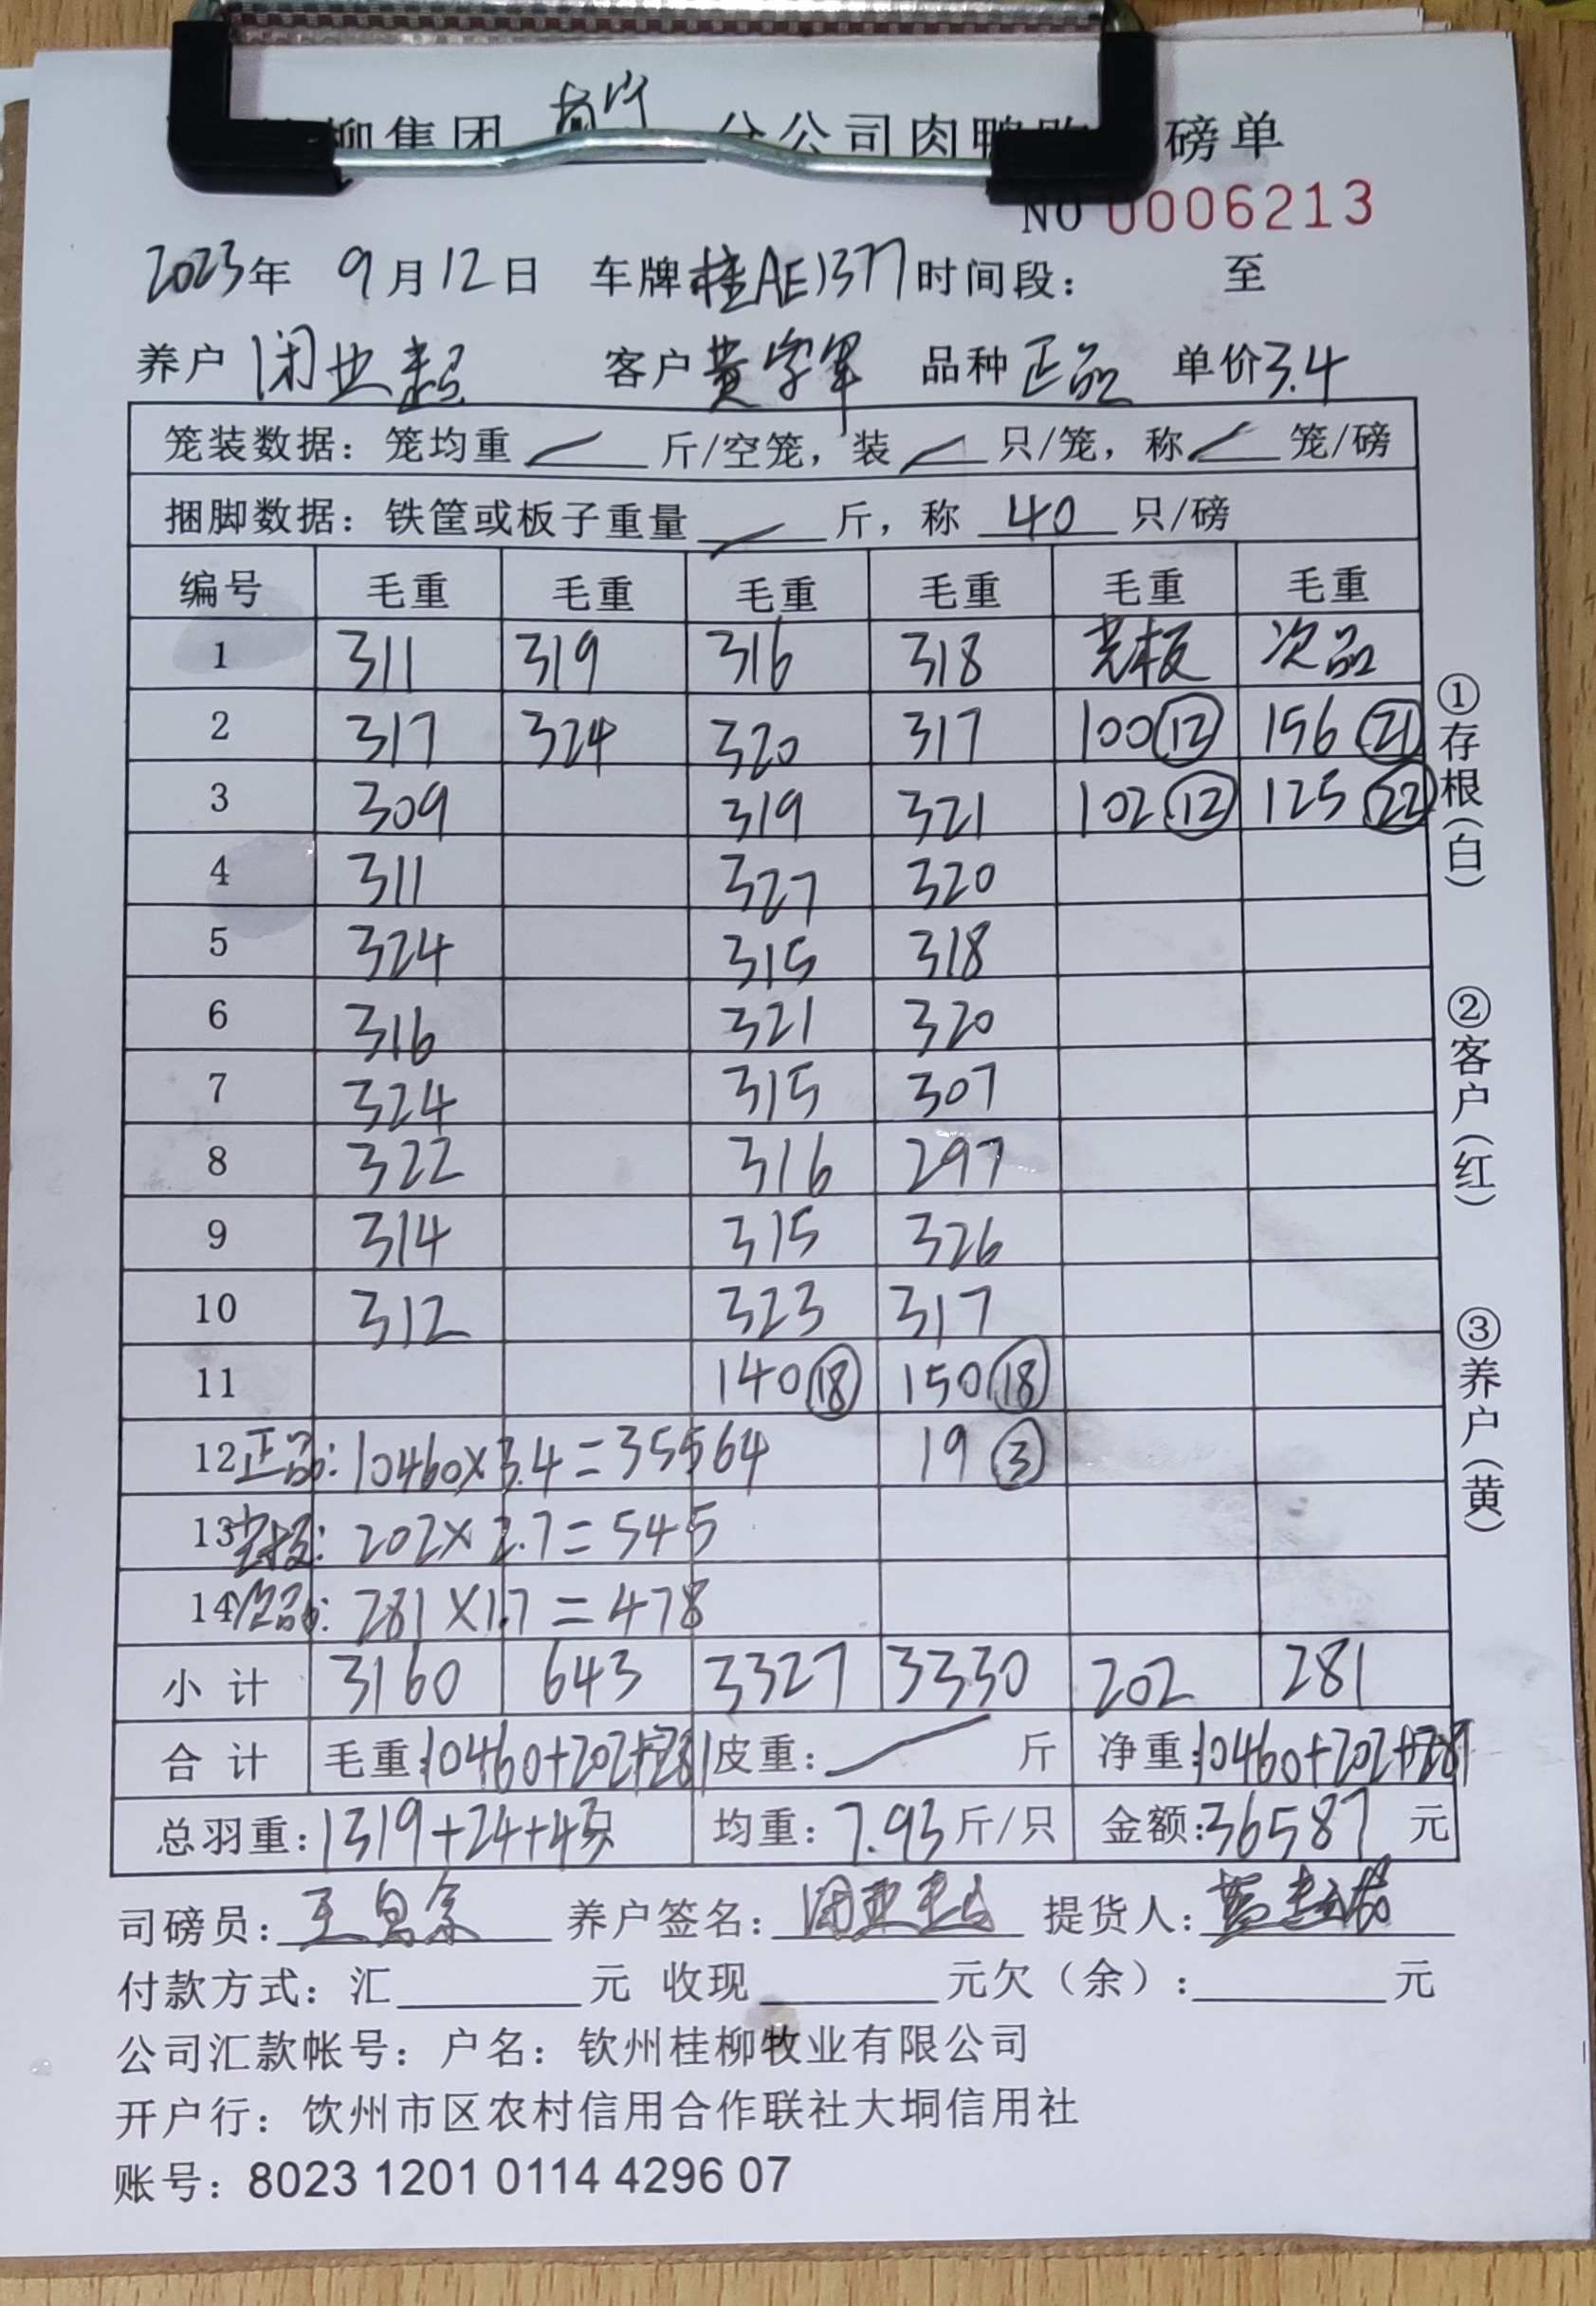 柳集团 南宁 分公司肉鸭 磅单
NO 0006213
2023年 9月12日 车牌桂AE1377时间段： 至
养户 闭业超 客户 黄字军 品种 正品 单价3.4
笼装数据：笼均重 斤/空笼，装 只/笼，称 笼/磅
捆脚数据：铁筐或板子重量 斤，称 40 只/磅
编号 毛重 毛重 毛重 毛重 毛重 毛重
1 311 319 316 318 次品
2 317 324 320 317 100⑫ 156㉑
3 309 319 321 102⑫ 125㉒
4 311 327 320
5 324 315 318
6 316 321 320
7 324 315 307
8 322 316 297
9 314 315 326
10 312 323 317
11 140⑱ 150⑱
12 正品：10460×3.4=35564 19③
13 ：202×2.7=545
14 次品：281×1.7=478
小计 3160 643 3327 3330 202 281
合计 毛重：10460+202+281 皮重： 斤 净重：10460+202+281
总羽重：1319+24+43只 均重：7.93斤/只 金额：36587 元
司磅员： 养户签名：闭业超 提货人：
付款方式：汇 元 收现 元欠（余）： 元
公司汇款帐号：户名：钦州桂柳牧业有限公司
开户行：饮州市区农村信用合作联社大垌信用社
账号：8023 1201 0114 4296 07
①存根（白）
②客户（红）
③养户（黄）